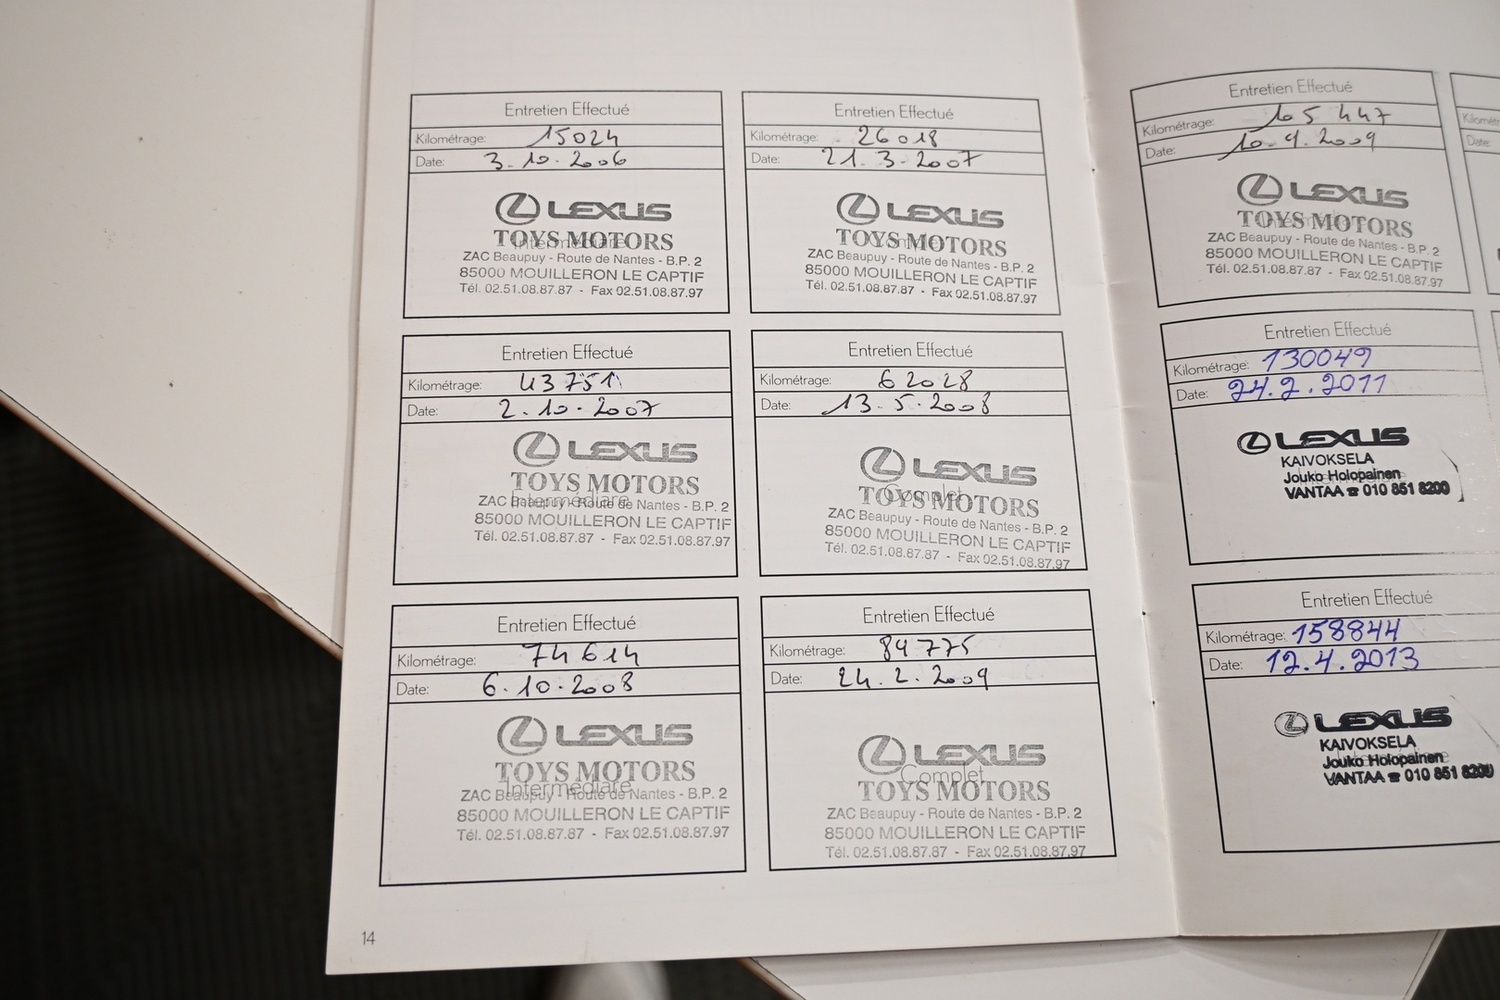 Entretien Effectué
Kilométrage: 15024
Date: 3.10.2006
LEXUS
Intermédiare
TOYS MOTORS
ZAC Beaupuy - Route de Nantes - B.P. 2
85000 MOUILLERON LE CAPTIF
Tél. 02.51.08.87.87 - Fax 02.51.08.87.97
Entretien Effectué
Kilométrage: 26018
Date: 21.3.2007
LEXUS
Complet
TOYS MOTORS
ZAC Beaupuy - Route de Nantes - B.P. 2
85000 MOUILLERON LE CAPTIF
Tél. 02.51.08.87.87 - Fax 02.51.08.87.97
Entretien Effectué
Kilométrage: 43751
Date: 2.10.2007
LEXUS
TOYS MOTORS
Intermédiare
ZAC Beaupuy - Route de Nantes - B.P. 2
85000 MOUILLERON LE CAPTIF
Tél. 02.51.08.87.87 - Fax 02.51.08.87.97
Entretien Effectué
Kilométrage: 62028
Date: 13.5.2008
LEXUS
Complet
TOYS MOTORS
ZAC Beaupuy - Route de Nantes - B.P. 2
85000 MOUILLERON LE CAPTIF
Tél. 02.51.08.87.87 - Fax 02.51.08.87.97
Entretien Effectué
Kilométrage: 74614
Date: 6.10.2008
LEXUS
TOYS MOTORS
Intermédiare
ZAC Beaupuy - Route de Nantes - B.P. 2
85000 MOUILLERON LE CAPTIF
Tél. 02.51.08.87.87 - Fax 02.51.08.87.97
Entretien Effectué
Kilométrage: 84775
Date: 24.2.2009
LEXUS
Complet
TOYS MOTORS
ZAC Beaupuy - Route de Nantes - B.P. 2
85000 MOUILLERON LE CAPTIF
Tél. 02.51.08.87.87 - Fax 02.51.08.87.97
14
Entretien Effectué
Kilométrage: 105447
Date: 10.9.2009
LEXUS
TOYS MOTORS
ZAC Beaupuy - Route de Nantes - B.P. 2
85000 MOUILLERON LE CAPTIF
Tél. 02.51.08.87.87 - Fax 02.51.08.87.97
Entretien Effectué
Kilométrage: 130049
Date: 24.2.2011
LEXUS
KAIVOKSELA
Jouko Holopainen
VANTAA ☎ 010 851 8200
Entretien Effectué
Kilométrage: 158844
Date: 12.4.2013
LEXUS
KAIVOKSELA
Jouko Holopainen
VANTAA ☎ 010 851 8200
Date: